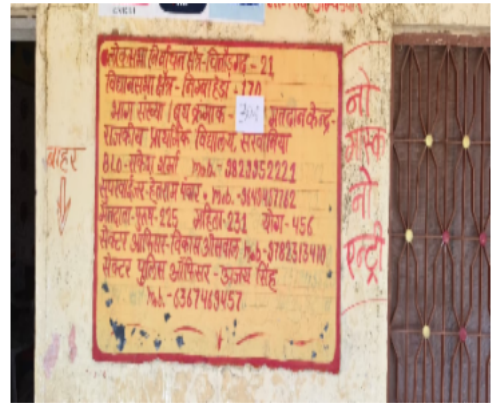 लोकसभा निर्वाचन क्षेत्र-चित्तौड़गढ़ - 21
विधानसभा क्षेत्र - निम्बाहेड़ा - 170
भाग संख्या / बूथ क्रमांक - मतदान केन्द्र-
राजकीय प्राथमिक विद्यालय, सरवानिया
BLO - राकेश शर्मा Mob. - 9829952221
सुपरवाईजर - हेमराम पंवार. Mob. -
मतदाता - पुरुष - 225 महिला - 231 योग - 456
सेक्टर ऑफिसर - विकास ओसवाल Mob -
सेक्टर पुलिस ऑफिसर - अजय सिंह
Mob. - 6367469457
बाहर
नो
मास्क
नो
एन्ट्री